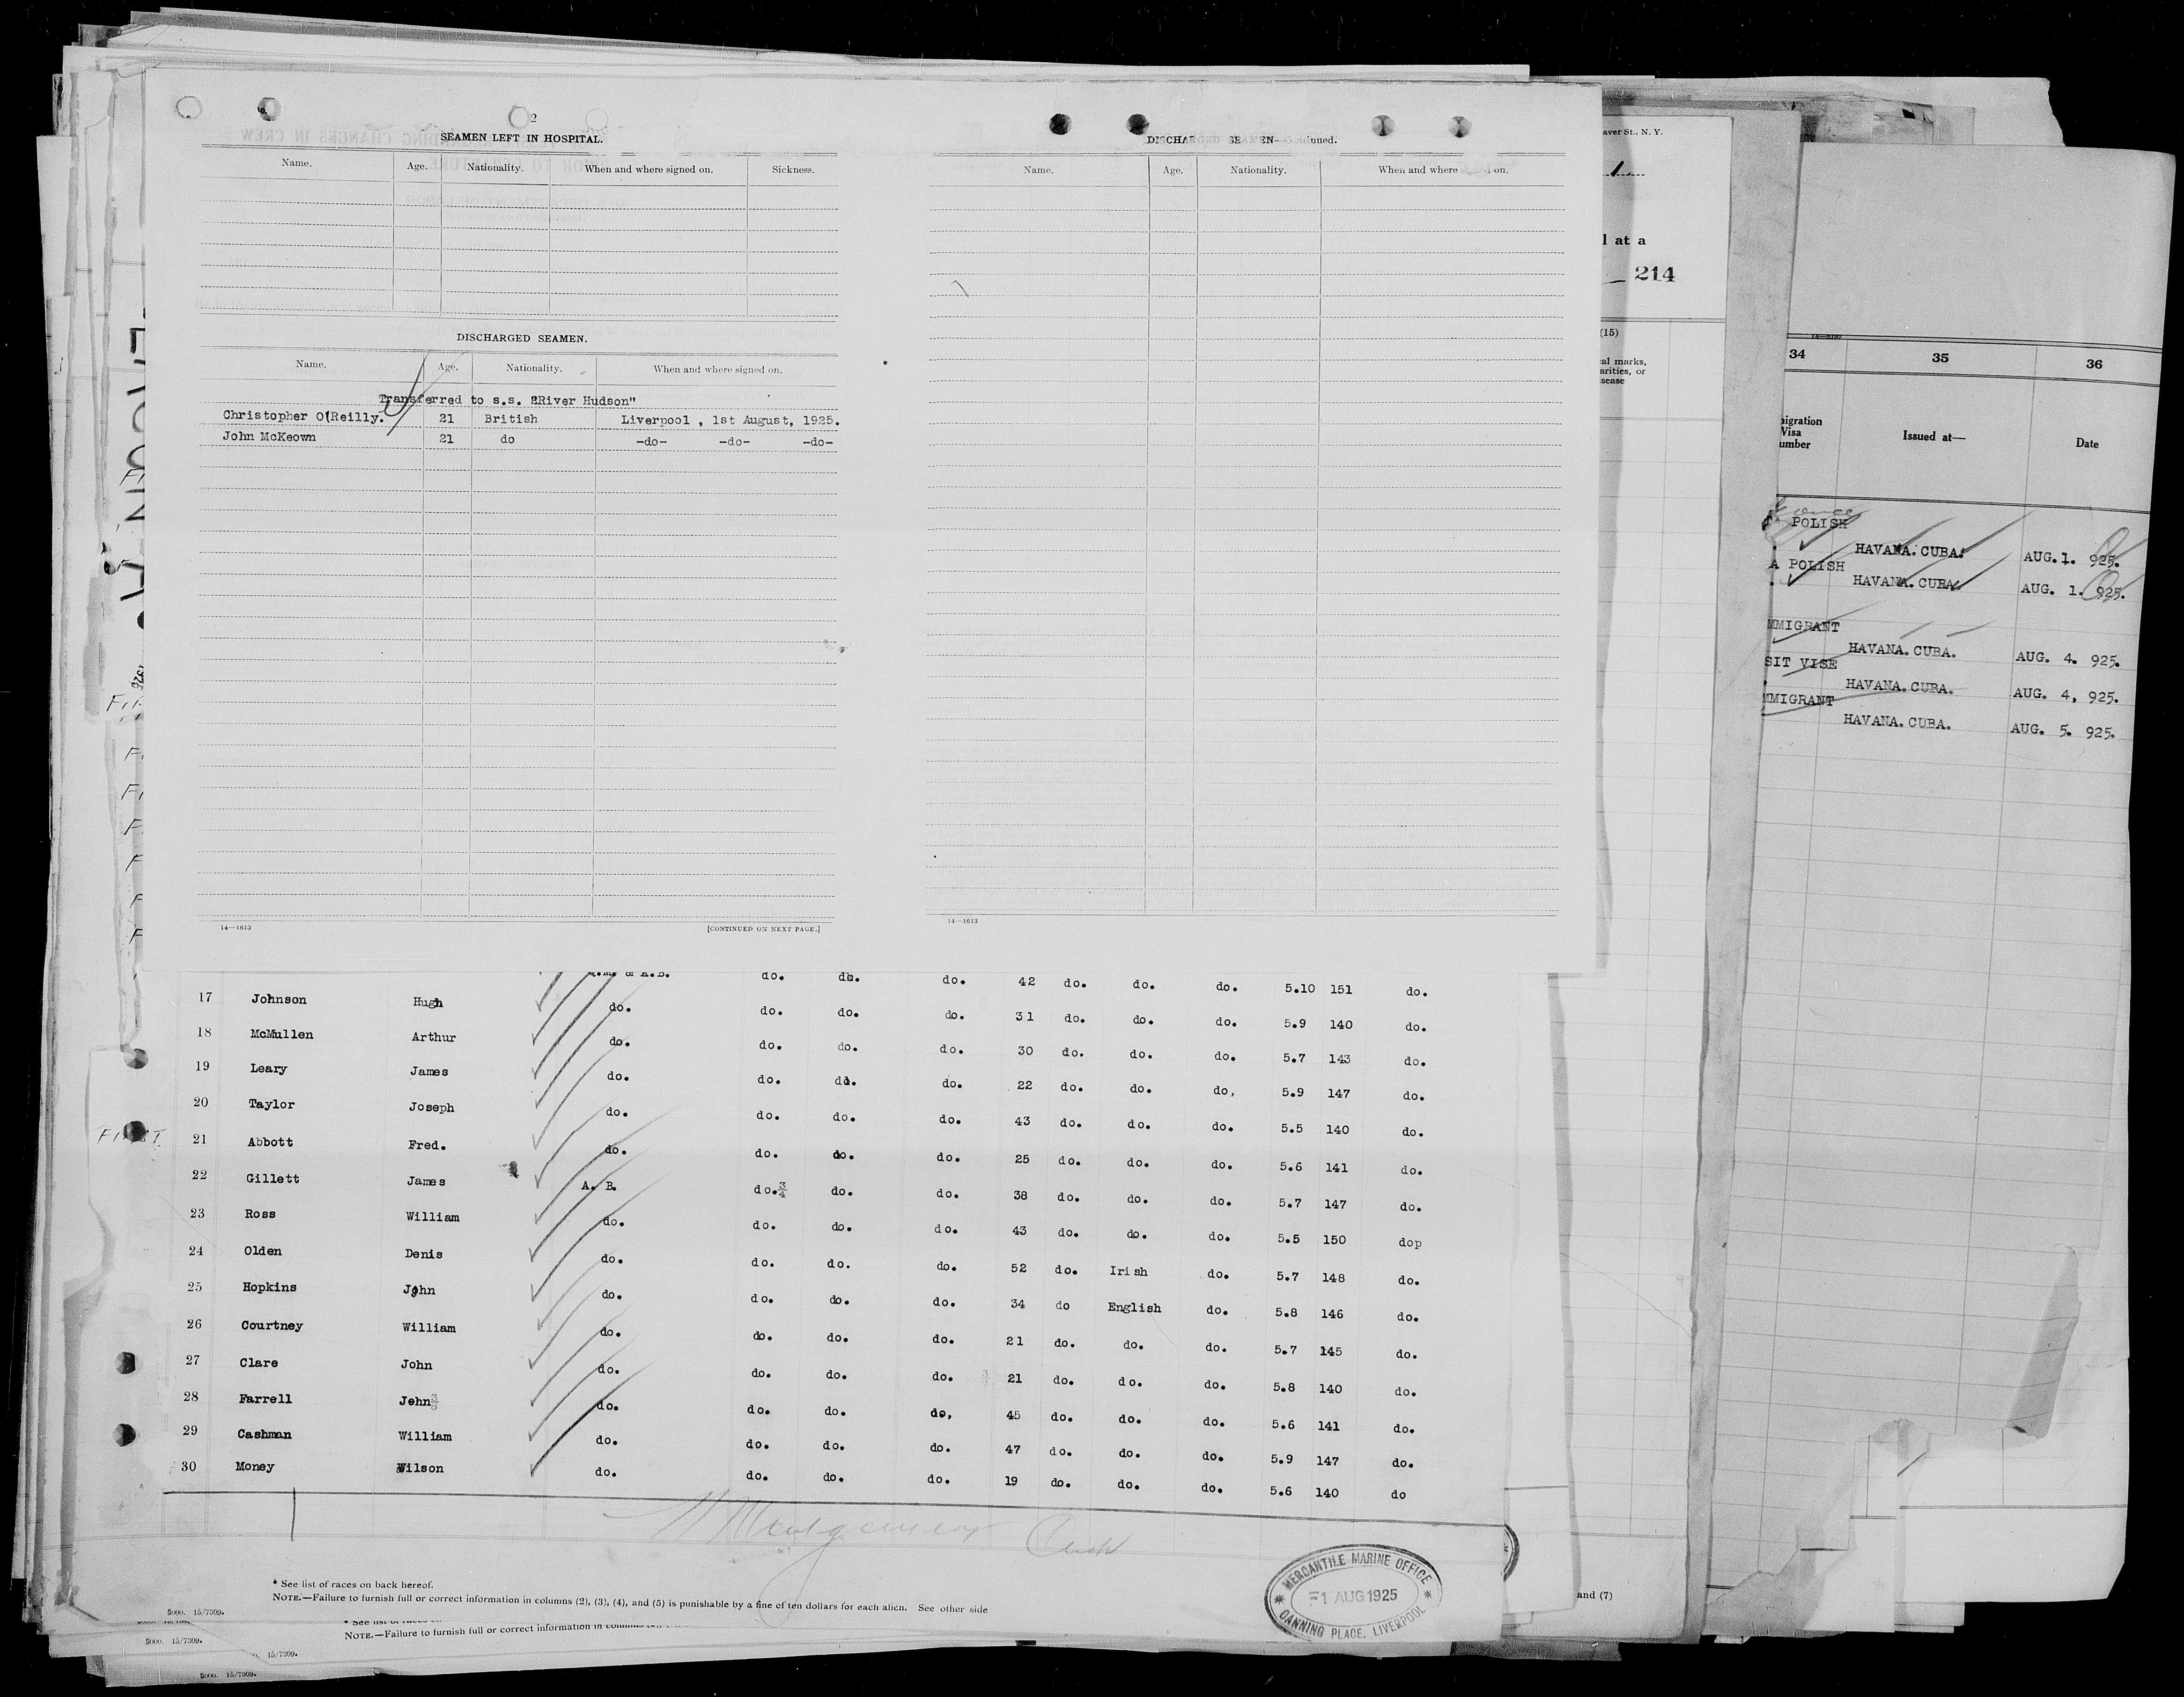 2
SEAMEN LEFT IN HOSPITAL.
Name. Age. Nationality. When and where signed on. Sickness.
DISCHARGED SEAMEN.
Name. Age. Nationality. When and where signed on.
Transferred to s.s. "River Hudson"
Christopher O'Reilly. 21 British Liverpool , 1st August, 1925.
John McKeown 21 do -do- -do- -do-
14—1613 [CONTINUED ON NEXT PAGE.]
Name. Age. Nationality. When and where
14—1613
do. do. do. 42 do. do. do. 5.10 151 do.
17 Johnson Hugh do. do. do. do. 31 do. do. do. 5.9 140 do.
18 McMullen Arthur do. do. do. do. 30 do. do. do. 5.7 143 do.
19 Leary James do. do. do. do. 22 do. do. do, 5.9 147 do.
20 Taylor Joseph do. do. do. do. 43 do. do. do. 5.5 140 do.
21 Abbott Fred. do. do. do. do. 25 do. do. do. 5.6 141 do.
22 Gillett James A. B. do.¾ do. do. 38 do. do. do. 5.7 147 do.
23 Ross William do. do. do. do. 43 do. do. do. 5.5 150 dop
24 Olden Denis do. do. do. do. 52 do. Irish do. 5.7 148 do.
25 Hopkins John do. do. do. do. 34 do English do. 5.8 146 do.
26 Courtney William do. do. do. do. 21 do. do. do. 5.7 145 do.
27 Clare John do. do. do. do. 21 do. do. do. 5.8 140 do.
28 Farrell John do. do. do. do, 45 do. do. do. 5.6 141 do.
29 Cashman William do. do. do. do. 47 do. do. do. 5.9 147 do.
30 Money Wilson do. do. do. do. 19 do. do. do. 5.6 140 do
* See list of races on back hereof.
NOTE.—Failure to furnish full or correct information in columns (2), (3), (4), and (5) is punishable by a fine of ten dollars for each alien. See other side
5000. 15/7309.
MERCANTILE MARINE OFFICE
1 AUG 1925
CANNING PLACE, LIVERPOOL
NOTE.—Failure to furnish full or correct information in
5000. 15/7309.
15/7309.
5000. 15/7309.
FIRST
aver St., N. Y.
1
l at a
214
(15)
cal marks,
arities, or
sease
and (7)
34 35 36
migration
Visa
umber
Issued at—
Date
POLISH
HAVANA. CUBA. AUG. 1. 925.
A POLISH
HAVANA. CUBA. AUG. 1. 925.
MMIGRANT
HAVANA. CUBA. AUG. 4. 925.
SIT VISE
HAVANA. CUBA. AUG. 4, 925.
MMIGRANT
HAVANA. CUBA. AUG. 5. 925.